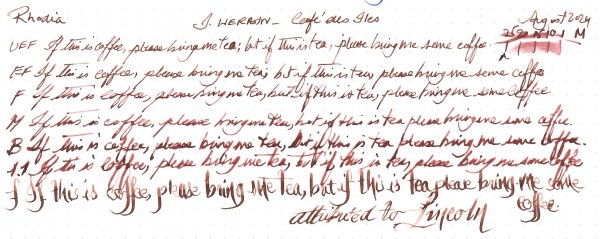 Rhodia J. HERBIN - Café des Iles August 2024
UEF If this is coffee, please bring me tea; but if this is tea, please bring me some coffee
EF If this is coffee, please bring me tea, but if this is tea, please bring me some coffee
F If this is coffee, please bring me tea, but if this is tea, please bring me some coffee
M If this is coffee, please bring me tea, but if this is tea please bring me some coffee.
B If this is coffee, please bring me tea, but if this is tea please bring me some coffee.
1.1 If this is coffee, please bring me tea, but if this is tea, please bring me some coffee
If this is coffee, please bring me tea, but if this is tea please bring me some
coffee
attributed to Lincoln